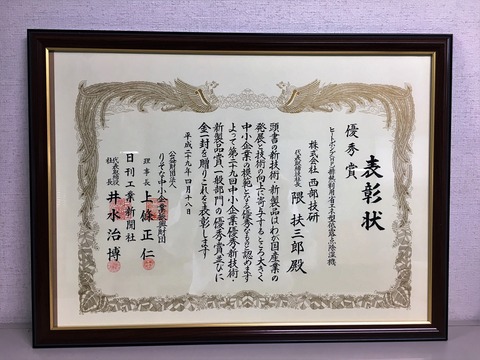 表彰状
優秀賞
ヒートポンプ排熱利用省エネ型低露点除湿機
株式会社 西部技研
代表取締役社長
隈 扶三郎 殿
頭書の新技術・新製品はわが国産業の
発展と技術の向上に寄与するところ大きく
中小企業の模範となる優秀なものと認めます
よって第二十九回中小企業優秀新技術・
新製品賞一般部門の優秀賞並びに
金一封を贈りこれを表彰します
平成二十九年四月十八日
公益財団法人
りそな中小企業振興財団
理事長 上條正仁
日刊工業新聞社
代表取締役
社長
井水治博